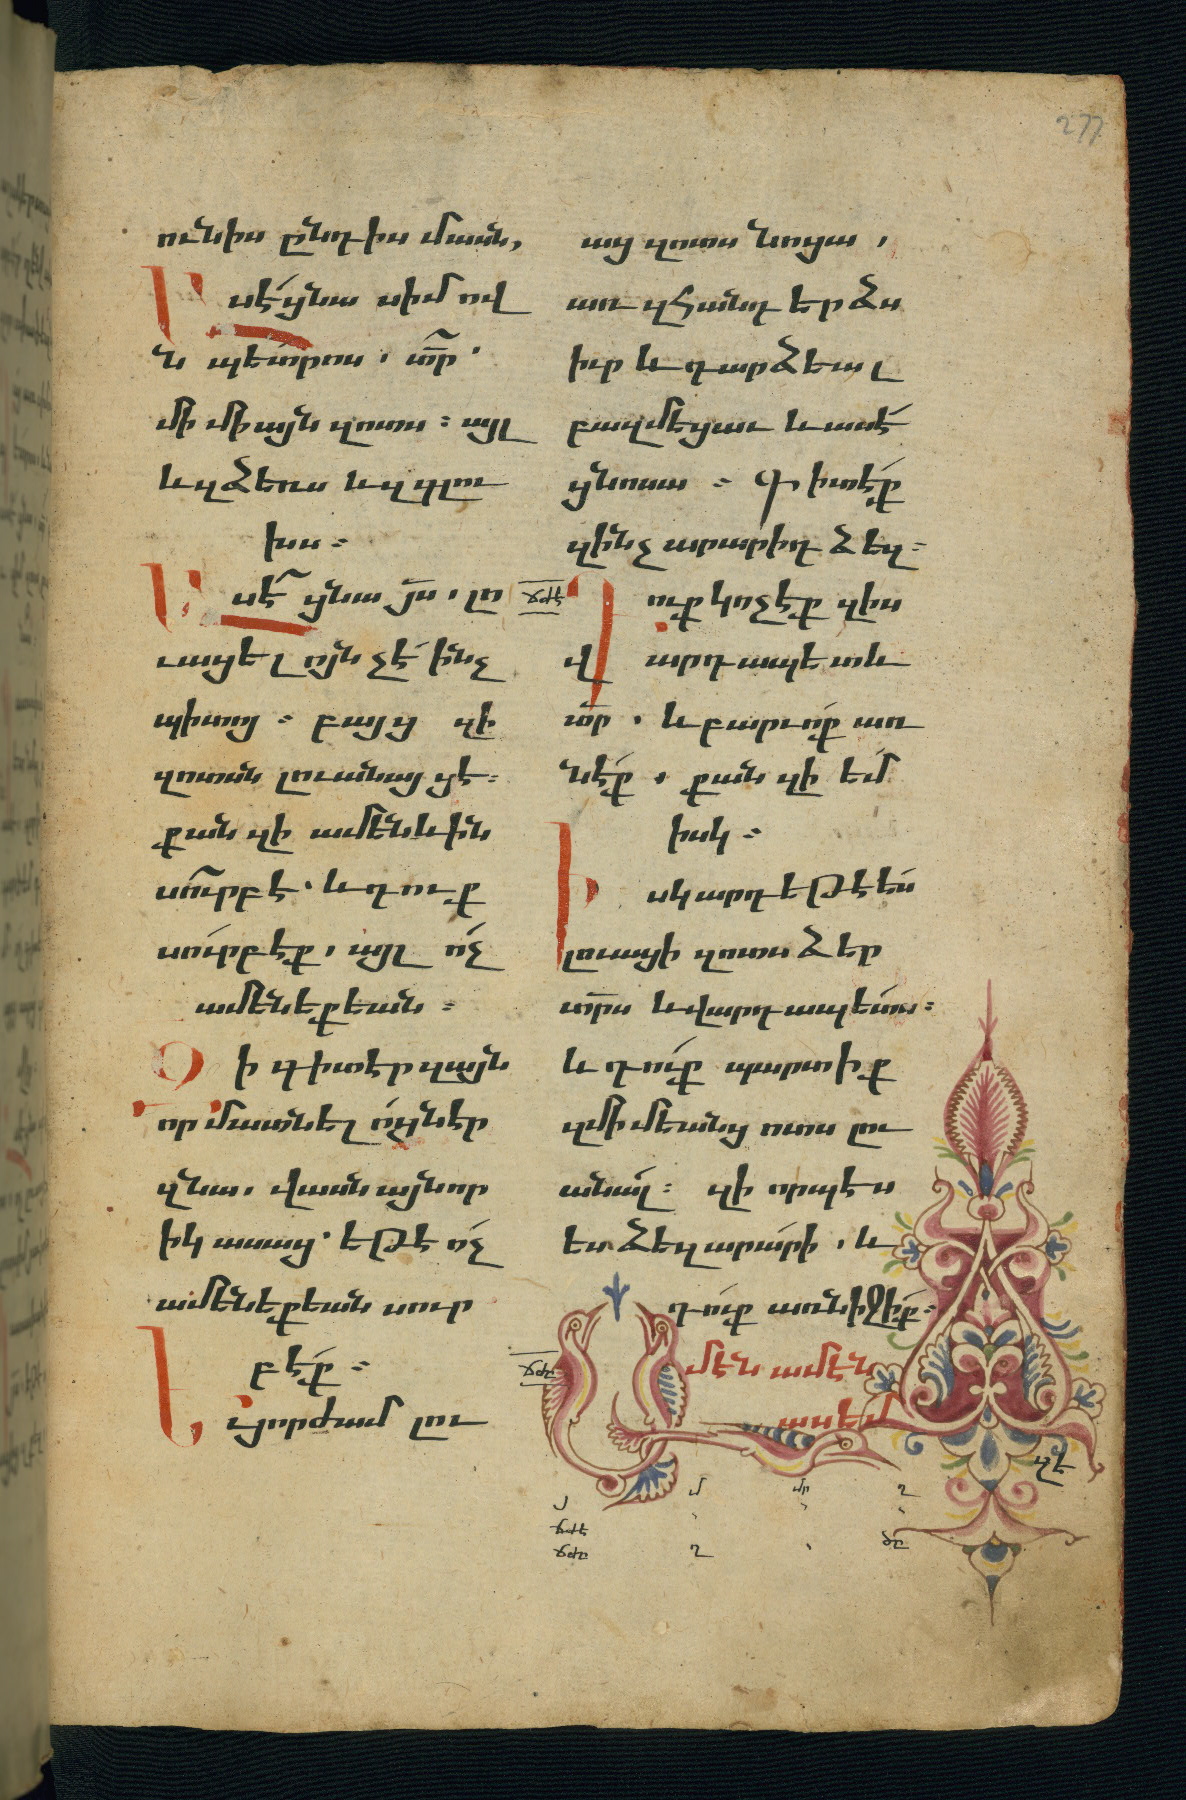 277
ունիս ընդիս մասն,
Ասէ ցնա սիմով
ն պետրոս. տր՛
մի միայն զոտս։ այլ
և զձեռս և զգլու
խս։
Ասէ ցնա յս. լո
ւացելոյն չէ ինչ
պիտոյ։ բայց զի
զոտսն լուանայցէ։
քանզի ամենևին
սուրբ է. և դուք
սուրբ էք, այլ ոչ
ամենեքեան։
Զի գիտէր զայն
որ մատնելոցն էր
զնա, վասն այնոր
իկ ասաց՝ եթէ ոչ
ամենեքեան սուր
բ էք։
Եւ յորժամ լու
աց զոտս նոցա,
առ զհանդերձս
իւր և դարձեալ
բազմեցաւ և ասէ
ցնոսա։ Գիտէք
զինչ արարի ձեզ։
ՃԺԷ
Դուք կոչէք զիս
վարդապետ և
տր, և բարւոք առ
նէք, քանզի եմ
իսկ։
Իսկ արդ եթէ ես
լուացի զոտս ձեր
տրս և վարդապետս։
և դուք պարտիք
զմիմեանց ոտս լու
անալ։ զի որպէս
ես ձեզ արարի, և
դուք առնիջիք։
ՃԺԸ
Ամէն ամէն
ասեմ
ձեզ